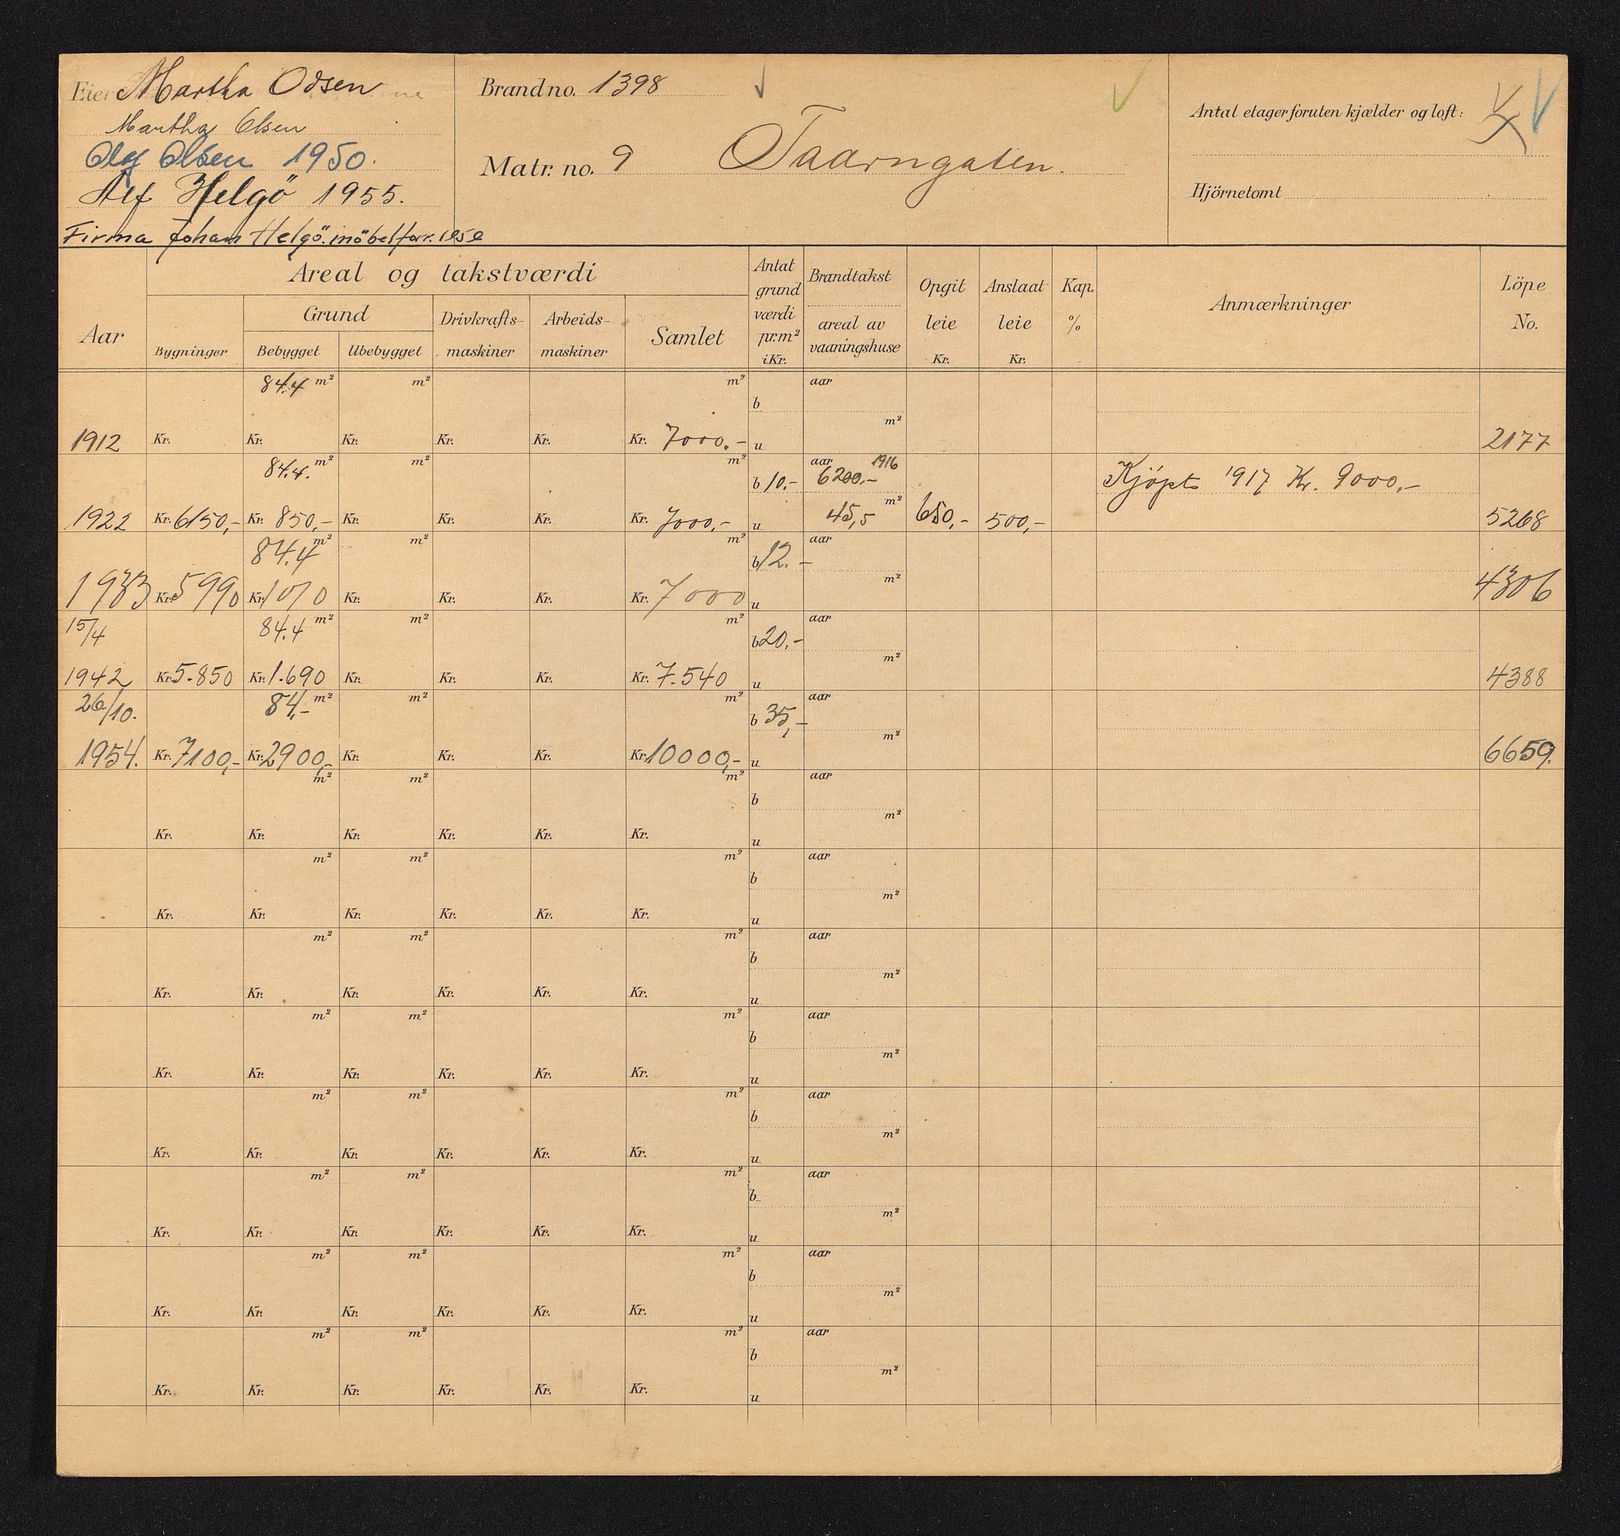 Eier Martha Odsen
Martha Olsen
Olsen 1950.
Alf Helgö 1955.
Firma Johan Helgö. möbelforr.
Brand no. 1398
Matr. no. 9 Taarngaten.
Antal etager foruten kjælder og loft:
Hjörnetomt
Aar
Areal og takstværdi
Bygninger
Grund
Bebygget Ubebygget
Drivkrafts-
maskiner
Arbeids-
maskiner
Samlet
Antat
grund
værdi
pr.m²
i Kr.
Brandtakst
areal av
vaaningshuse
Opgit
leie
Kr.
Anslaat
leie
Kr.
Kap.
%
Anmærkninger
Löpe
No.
84.4 m² m² m² aar
b
m²
1912 Kr. Kr. Kr. Kr. Kr. Kr. 7000.- u 2177
84.4. m² m² m² aar 1916
b 10.- 6200.- Kjöpt 1917 Kr. 9000,-
m²
1922 Kr. 6150,- Kr. 850,- Kr. Kr. Kr. Kr. 7000,- u 45,5 650,- 500,- 5268
84.4 m² m² m² aar
b 12.-
m²
1933 Kr. 5990 Kr. 1010 Kr. Kr. Kr. Kr. 7000 u 4306
15/4 84.4 m² m² m² aar
b 20,-
m²
1942 Kr. 5.850 Kr. 1.690 Kr. Kr. Kr. Kr. 7.540 u 4388
26/10. 84,- m² m² m² aar
b 35,-
m²
1954. Kr. 7100,- Kr. 2900,- Kr. Kr. Kr. Kr. 10000,- u 6659.
m² m² m² aar
b
m²
Kr. Kr. Kr. Kr. Kr. Kr. u
m² m² m² aar
b
m²
Kr. Kr. Kr. Kr. Kr. Kr. u
m² m² m² aar
b
m²
Kr. Kr. Kr. Kr. Kr. Kr. u
m² m² m² aar
b
m²
Kr. Kr. Kr. Kr. Kr. Kr. u
m² m² m² aar
b
m²
Kr. Kr. Kr. Kr. Kr. Kr. u
m² m² m² aar
b
m²
Kr. Kr. Kr. Kr. Kr. Kr. u
m² m² m² aar
b
m²
Kr. Kr. Kr. Kr. Kr. Kr. u
m² m² m² aar
b
m²
Kr. Kr. Kr. Kr. Kr. Kr. u